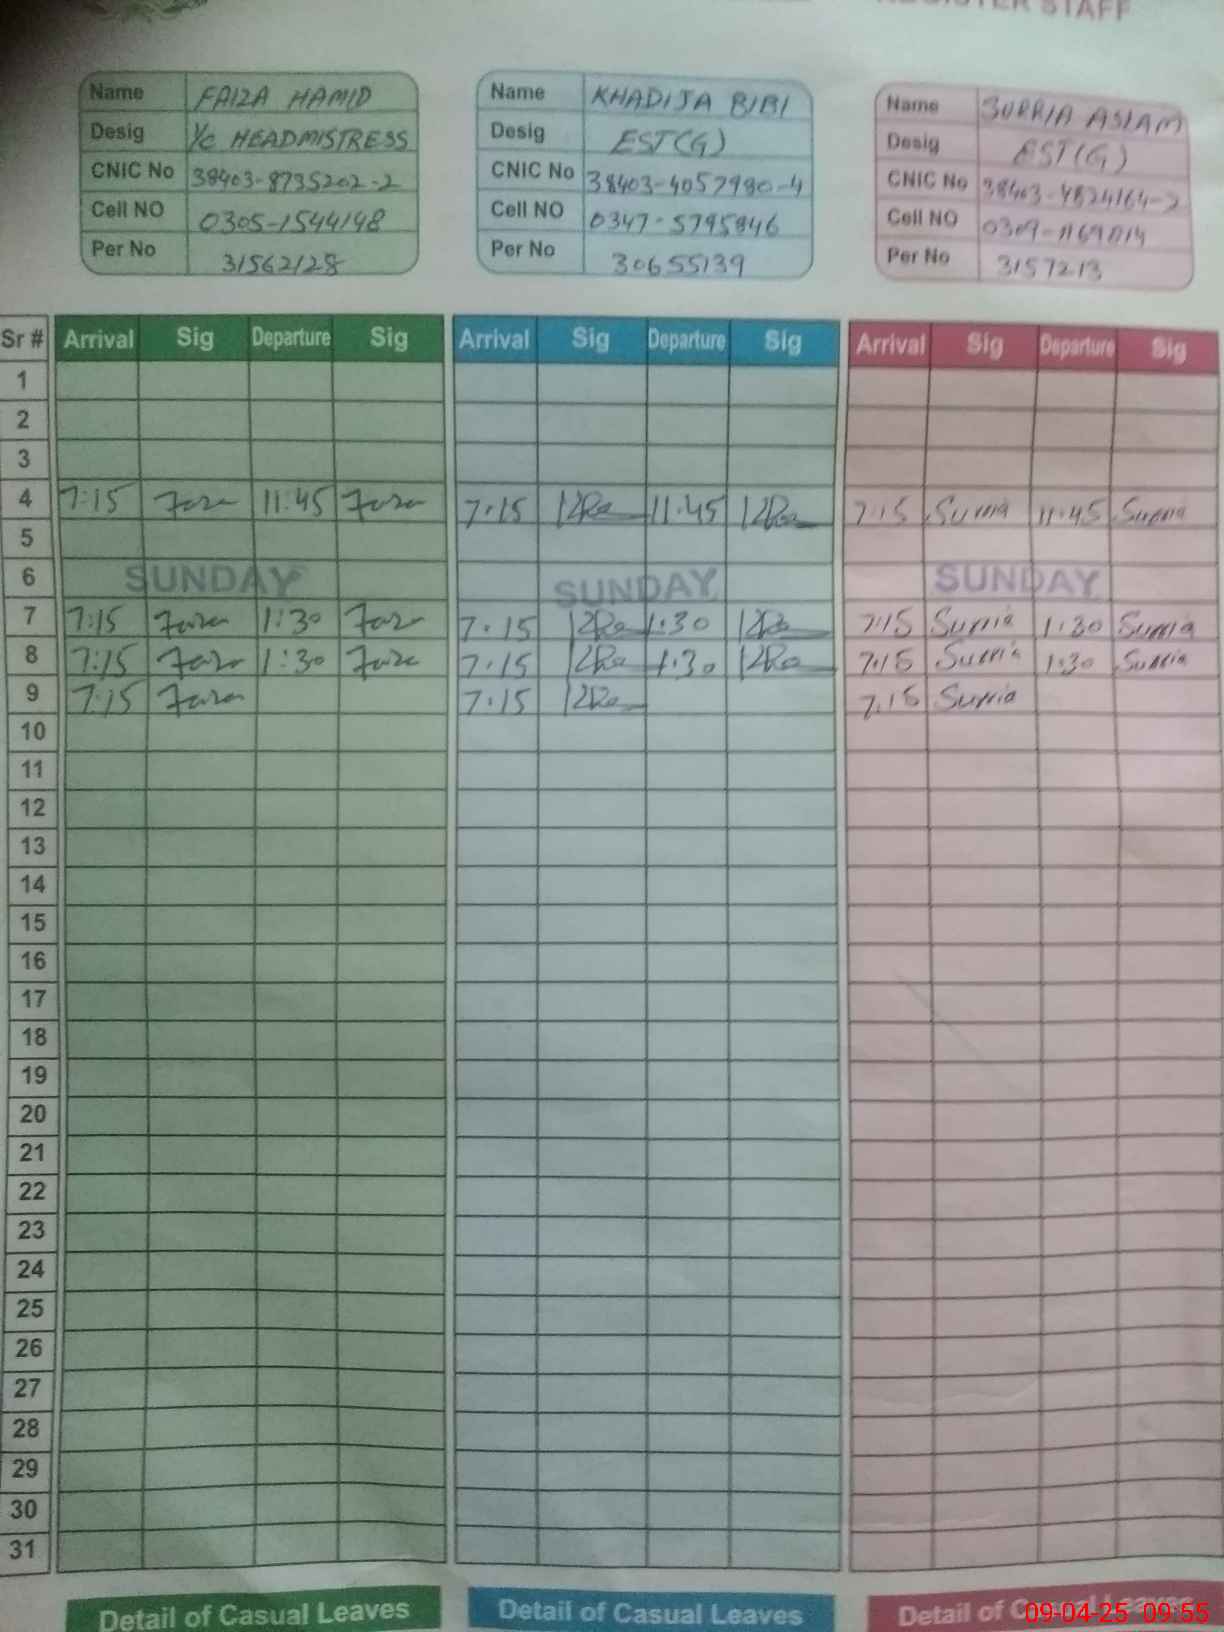 REGISTER STAFF
Name FAIZA HAMID
Desig I/C HEADMISTRESS
CNIC No 38403-8735202-2
Cell NO 0305-1544148
Per No 31562128
Name KHADIJA BIBI
Desig EST(G)
CNIC No 38403-4057980-4
Cell NO 0347-5795846
Per No 30655139
Name SURRIA ASLAM
Desig EST(G)
CNIC No 38403-4824164-2
Cell NO
Per No 3157213
Sr # Arrival Sig Departure Sig Arrival Sig Departure Sig Arrival Sig Departure Sig
1
2
3
4 7:15 Faiza 11:45 Faiza 7:15 11:45 7:15 Surria 11:45 Surria
5
6 SUNDAY SUNDAY SUNDAY
7 7:15 Faiza 1:30 Faiza 7:15 1:30 7:15 Surria 1:30 Surria
8 7:15 Faiza 1:30 Faiza 7:15 1:30 7:15 Surria 1:30 Surria
9 7:15 Faiza 7:15 7:15 Surria
10
11
12
13
14
15
16
17
18
19
20
21
22
23
24
25
26
27
28
29
30
31
Detail of Casual Leaves Detail of Casual Leaves Detail of Casual Leaves
09-04-25 09:55